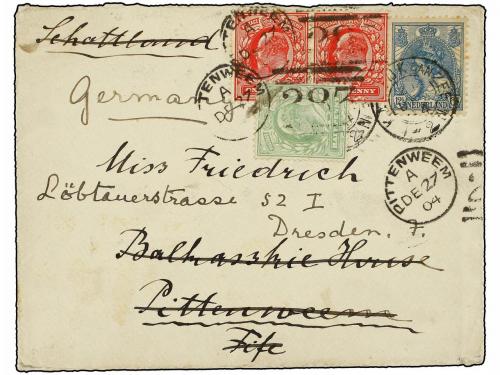 Schottland
Germany
Miss Friedrich
Löbtauerstrasse 52 I
Dresden. F.
Balkasskie House
Pittenweem
Fife
PITTENWEEM
A
DE 27
04
NEDERLAND